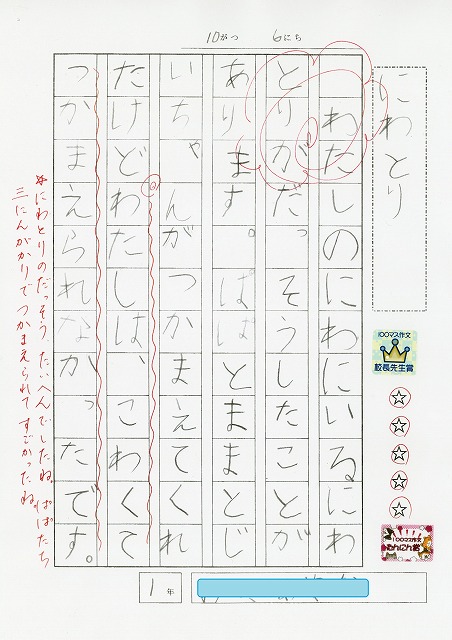 10がつ 6にち
にわとり
わたしのにわにいるにわ
とりがだっそうしたことが
あります。ぱぱとままとじ
いちゃんがつかまえてくれ
たけどわたしは、こわくて
つかまえられなかったです。
☆にわとりのだっそう、たいへんでしたね。ぱぱたち
三にんがかりでつかまえられてすごかったね。
100マス作文
校長先生賞
100マス作文
1年